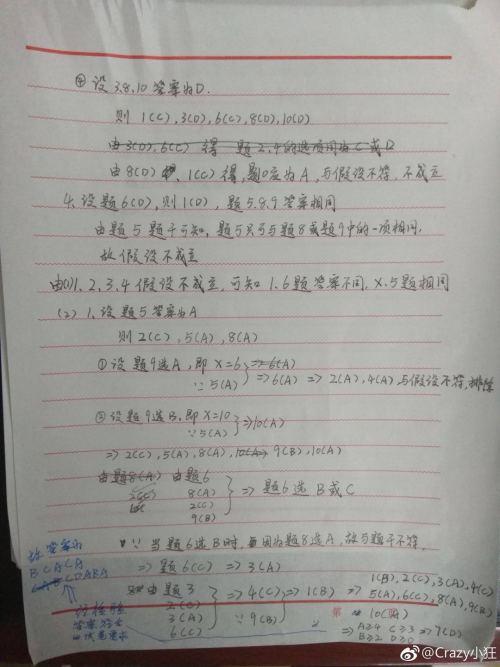 ④设3.8.10答案为D.
则 1(C),3(D),6(C),8(D),10(D)
由3(D),6(C) 得 题2.4的选项同为C或D
由8(D) 1(C)得,题10应为A,与假设不符,不成立
4.设题6(D),则1(D),题5.8.9答案相同
由题5题干可知,题5只可与题8或题9中的一项相同,
故假设不成立
由(1)1.2.3.4假设不成立,可知 1.6题答案不同,X.5题相同
(2) 1.设题5答案为A
则 2(C),5(A),8(A)
①设题9选A,即X=6 ⇒6(A)
∵5(A) ⇒6(A) ⇒ 2(A),4(A)与假设不符,排除
②设题9选B,即X=10
∵5(A) ⇒10(A)
⇒ 2(C),5(A),8(A),10(A)⇒ 9(B),10(A)
由题8(A) 由题6
2(C) 8(A)
2(C)
9(B)
⇒ 题6选B或C
∵ 当题6选B时,因为题8选A,故与题干不符,
⇒ 题6(C) ⇒ 3(A)
由题3
2(C)
3(A)
6(C)
⇒ 4(C)
∵ 9(B)
⇒ 1(B)
⇒ 1(B),2(C),3(A),4(C)
5(A),6(C),8(A),9(B)
10(A)
第
⇒ A≥4 C≥3
B≥2 D≥0
⇒7(D)
故答案为
BCACA
CDABA
经检验
答案符合
@Crazy小狂